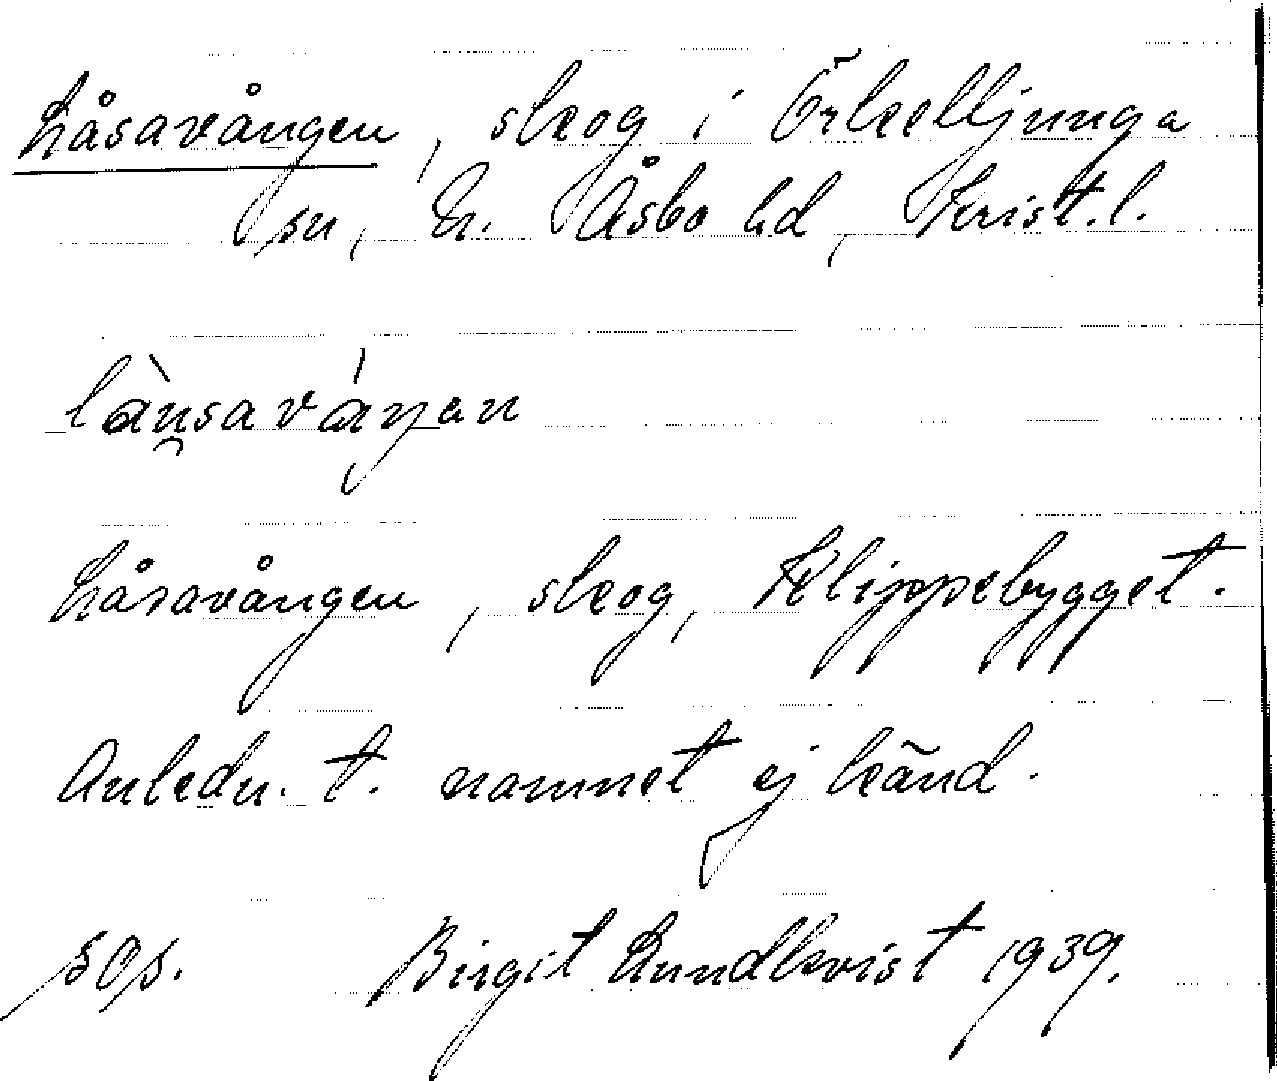 Låsavången, skog i Örkelljunga
sn, N. Åsbo hd, Krist.l.
Låsavången, skog, Klippebygget.
Anledn. t. namnet ej känd.
sops.
Birgit Lundkvist 1939.